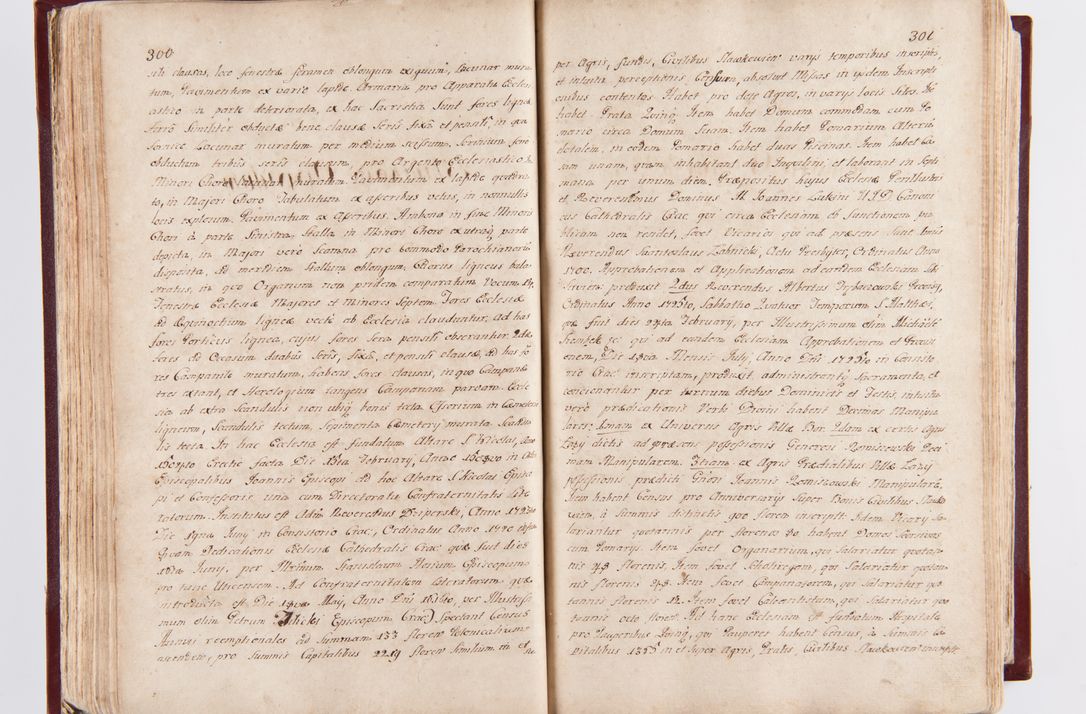 300
clausus, loco fenestræ foramen oblongum exiguum, Lacunar mura
tum, Pavimentum ex vario lapide. Armaria pro Apparatu Eccles
astico in parte deteriorata, ex hac Sacristia sunt fores ligneæ
ferro similiter obductæ bene clausæ seris fixa et pensili, in qua
fornice Lacunar muratum per medium scissum, Scrinium ferro
obductum tribus seris clausum, pro Argento Ecclesiastico In
Minori Choro Lacunar muratum Pavimentum ex lapide quadra
to, in Majori Choro Tabulatum ex asseribus vetus, in nonnullis
locis explorum, Pavimentum ex Asseribus. Ambona in fine Minoris
Chori à parte Sinistra. Stalla in Minori Choro ex utraq parte
depicta, in Majori verò Scamna pro Commodo Parochianorum
disposita, Ad meridiem Stallum oblongum. Chorus ligneus balu
stratus, in quo Organum non pridem comparatum Vocum
Fenestræ Ecclesiæ Majores et Minores Septem. Fores Ecclesiæ
Ad Æquinoctium ligneæ vecte ab Ecclesia clauduntur, ad has
fores Porticus lignea, cujus fores sera pensili obserantur. 2dæ
fores ad Occasum duabus Seris, fixa, et pensili clausæ, ad has fo
res Campanile muratum, habens fores clausas, in quo Campanæ
tres extant, et Horologium tangens Campanam parvam. Eccle
sia ab extra Scandulis non ubiq bonis tecta Ossorium in Cæmeterio
ligneum, Scandulis tectum, Sepimenta Cæmeterij murata Scandu
lis tecta. In hac Ecclesia est fundatum Altare S. Nicolai,
Erectio facta Die Februarij, Anno in
Episcopalibus Joannis Episcopi ad hoc Altare S. Nicolai Episco
pi et Confessoris una cum Directoratu Confraternitatis Lite
ratorum. Institutus est Adm Reverendus Anno
Die Junij in Consistorio Crac: Ordinatus Anno
Quam Dedicationis Ecclesiæ Cathedralis Crac quæ fuit dies
Junij, per Stanislaum Episcopum
pro tunc Uticensem. Ad Confraternitatem Literatorum quæ
introducta est Die Maij, Anno Dni per Illustrissi
mum olim Petrum Episcopum Crac spectant Census
Annui reemptionales ad Summam 133 floren Poloncalium
pro Summis Capitalibus 2219 floren similium in et

301
per Agris, fundis, Civilibus Slawkovien varijs temporibus inscriptis,
et intuitu perceptionis Censuum, absolvit Missas in ijsdem Inscripti
onibus contentas Habet pro dote Agros, in varijs locis sitos. It
habet Prata Item habet Domum commodam cum Po
mario circa Domum Suam. Item habet Pomarium Alterius
dotalem, in eodem Pomario habet duas Piscinas. Item habet Ca
sam unam, quam inhabitant duo Inquilini et laborant in septi
mana per unum diem. Præpositus hujus Ecclesiæ Perillustris
et Reverendissimus Dominus Joannes Lukini U.J.D. Canoni
cus Cathedralis Crac qui circa Ecclesiam ob functionem pu
blicam non residet, fovet Vicarios qui ad præsens sunt
Reverendus Suentoslaus Zabnicki, Actu Presbyter, Ordinatus Anno
1700. Approbationem et Applicationem ad eandem Ecclesiam
serviens produxit 2dus Reverendus Albertus
Ordinatus Anno Sabbatho Quatuor Temporum S. Mathiæ,
quæ fuit dies Februarij, per Illustrissimum olim Michaëlem
qui ad eandem Ecclesiam Approbationem et
onem, Die Mensis Julij, Anno Dni in Consisto
rio Crac inscriptam, produxit, administrantq Sacramenta, et
concionantur per turnum diebus Dominicis et Festis, intuitu
verò prædicationis Verbi Divini habent Decimas Manipu
lares Imam ex Universis Agris Villæ Bor. 2dam ex certis Agris
Lazy dictis ad præsens possessionis Generosi Romiszewski Deci
mam Manipularem. 3tiam ex Agris Prædialibus Villæ Lazy
possessionis prædicti Gnosi Joannis Romiszowski Manipularem,
Item habent Census pro Anniversarijs Super Bonis Civilibus
vien, à Summis distinctis 900 floren inscriptis. Iidem Vicarij Sa
lariantur quotannis per florenos 30. habent Domos Seorsivas
cum Pomarijs. Item fovet Organarium, qui Salariatur quotan
nis 48 florenis. Item fovet Scholiregam, qui Salariatur quotan
nis florenis 48. Item fovet Campanatorem, qui salariatur quo
tannis florenis 12. Item fovet Calcantistam, qui Salariatur quo
tannis octo floren. Ad hanc Ecclesiam est fundatum Hospitale
pro Pauperibus qui Pauperes habent Census, à Summis ca
pitalibus 1355 in et super Agris, Pratis, Civilibus Slawkovien inscript